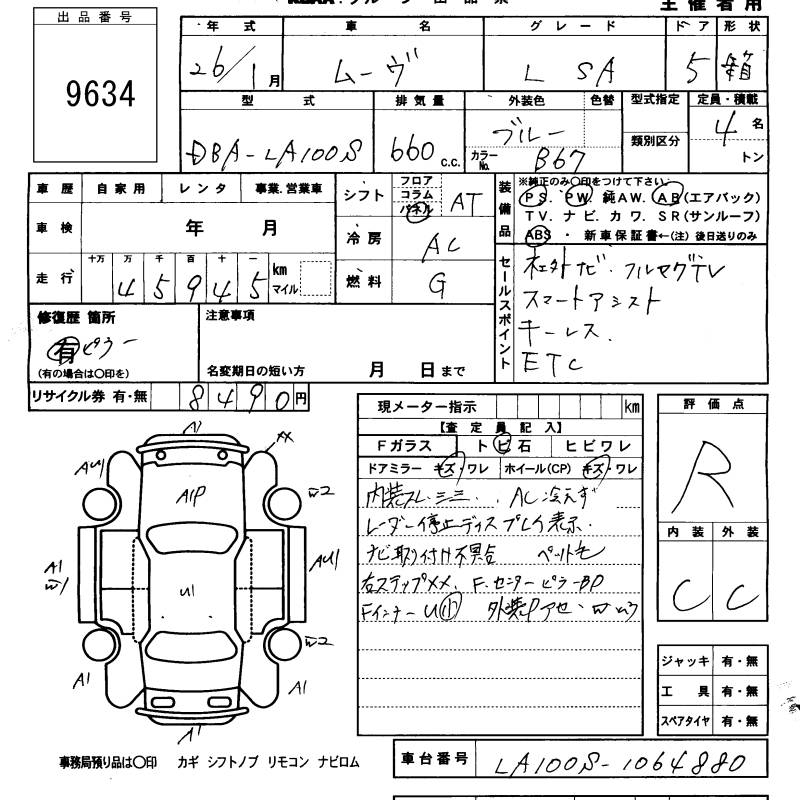 主催者用
出品番号
9634
年式 車名 グレード ドア 形状
26/1月 ムーヴ L SA 5 箱
型式 排気量 外装色 色替 型式指定 定員・積載
DBA-LA100S 660 c.c. ブルー 類別区分 4名
カラーNo. B67 トン
車歴 自家用 レンタ 事業.営業車
車検 年 月
走行 十万 万 千 百 十 一 km マイル
4 5 9 4 5
シフト フロア コラム パネル AT
冷房 AC
燃料 G
装備品
※純正のみ○印をつけて下さい。
PS. PW. 純AW. AB(エアバック)
TV. ナビ. カワ. SR(サンルーフ)
ABS ・ 新車保証書←(注) 後日送りのみ
セールスポイント
社外ナビ・フルセグTV
スマートアシスト
キーレス.
ETC
修復歴 箇所
有 ピラー
(有の場合は○印を)
注意事項
名変期日の短い方 月 日まで
リサイクル券 有・無 8490円
現メーター指示 km
【査定員記入】
Fガラス トビ石 ヒビワレ
ドアミラー キズ・ワレ ホイール(CP) キズ・ワレ
内装スレ.シミ. AC冷えず
レーダー停止ディスプレイ表示.
ナビ取り付け不具合 ペット毛
右ステップXX. F.センターピラーBP
Fインナー U小 外装Pアセ・
評価点
R
内装 外装
C C
ジャッキ 有・無
工具 有・無
スペアタイヤ 有・無
A1
XX
AU1
A1P
W2
A1
W1
AU1
U1
W2
A1
A1
A1
事務局預り品は○印 カギ シフトノブ リモコン ナビロム
車台番号 LA100S-1064880